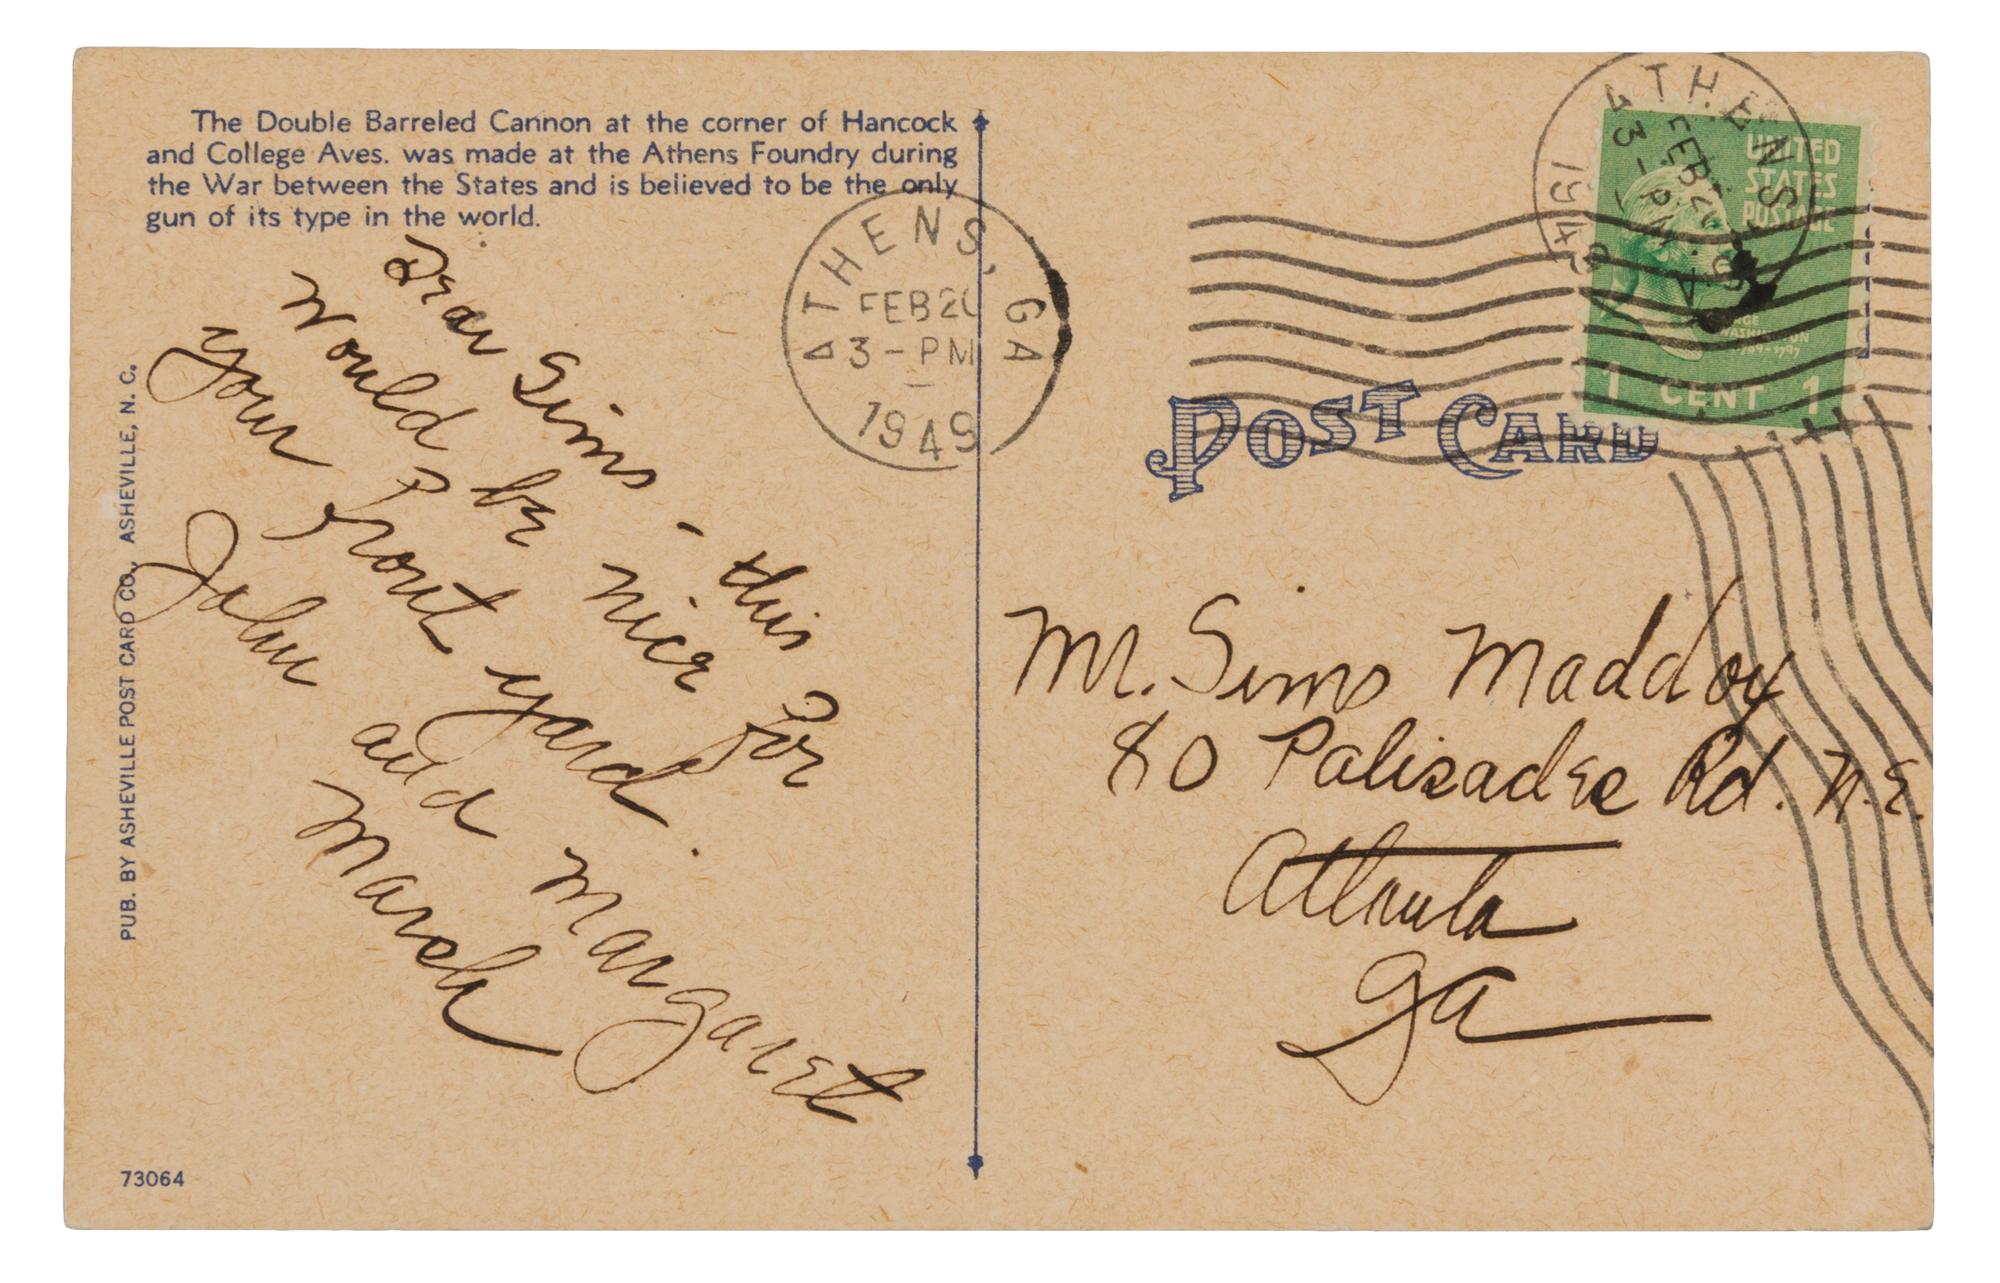 The Double Barreled Cannon at the corner of Hancock
and College Aves. was made at the Athens Foundry during
the War between the States and is believed to be the only
gun of its type in the world.
Dear Sims - this
would be nice for
your front yard.
John and Margaret
Marsh
PUB. BY ASHEVILLE POST CARD CO., ASHEVILLE, N. C.
73064
ATHENS, GA
FEB 20
3-PM
1949
ATHENS, GA
FEB 20
3-PM
1949
UNITED
STATES
POSTAGE
WASHINGTON
1789-1797
1 CENT 1
POST CARD
Mr. Sims Maddox
80 Palisades Rd. N.E.
Atlanta
Ga